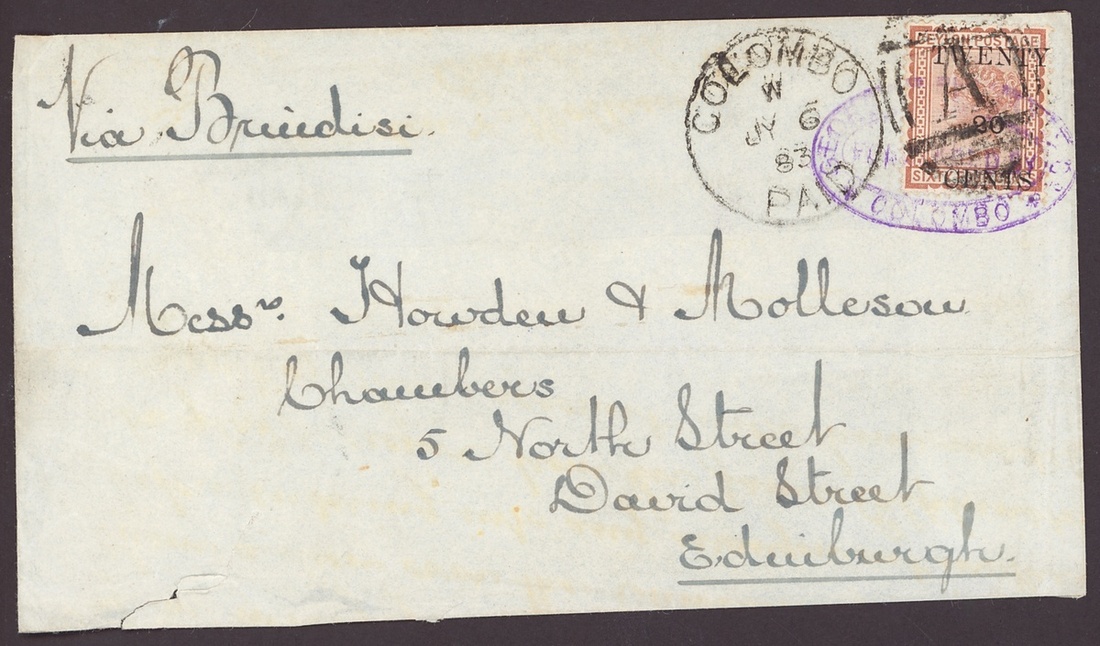 Via Brindisi.
COLOMBO
W
JY 6
83
PA
CEYLON POSTAGE
TWENTY
A
20
CENTS
SIXT
COLOMBO
Messrs. Howden & Molleson
Chambers
5 North Street
David Street
Edinburgh.